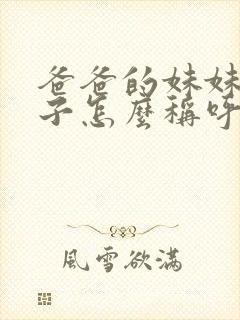 爸爸的妹妹
子怎麼稱呼
風雪欲滿